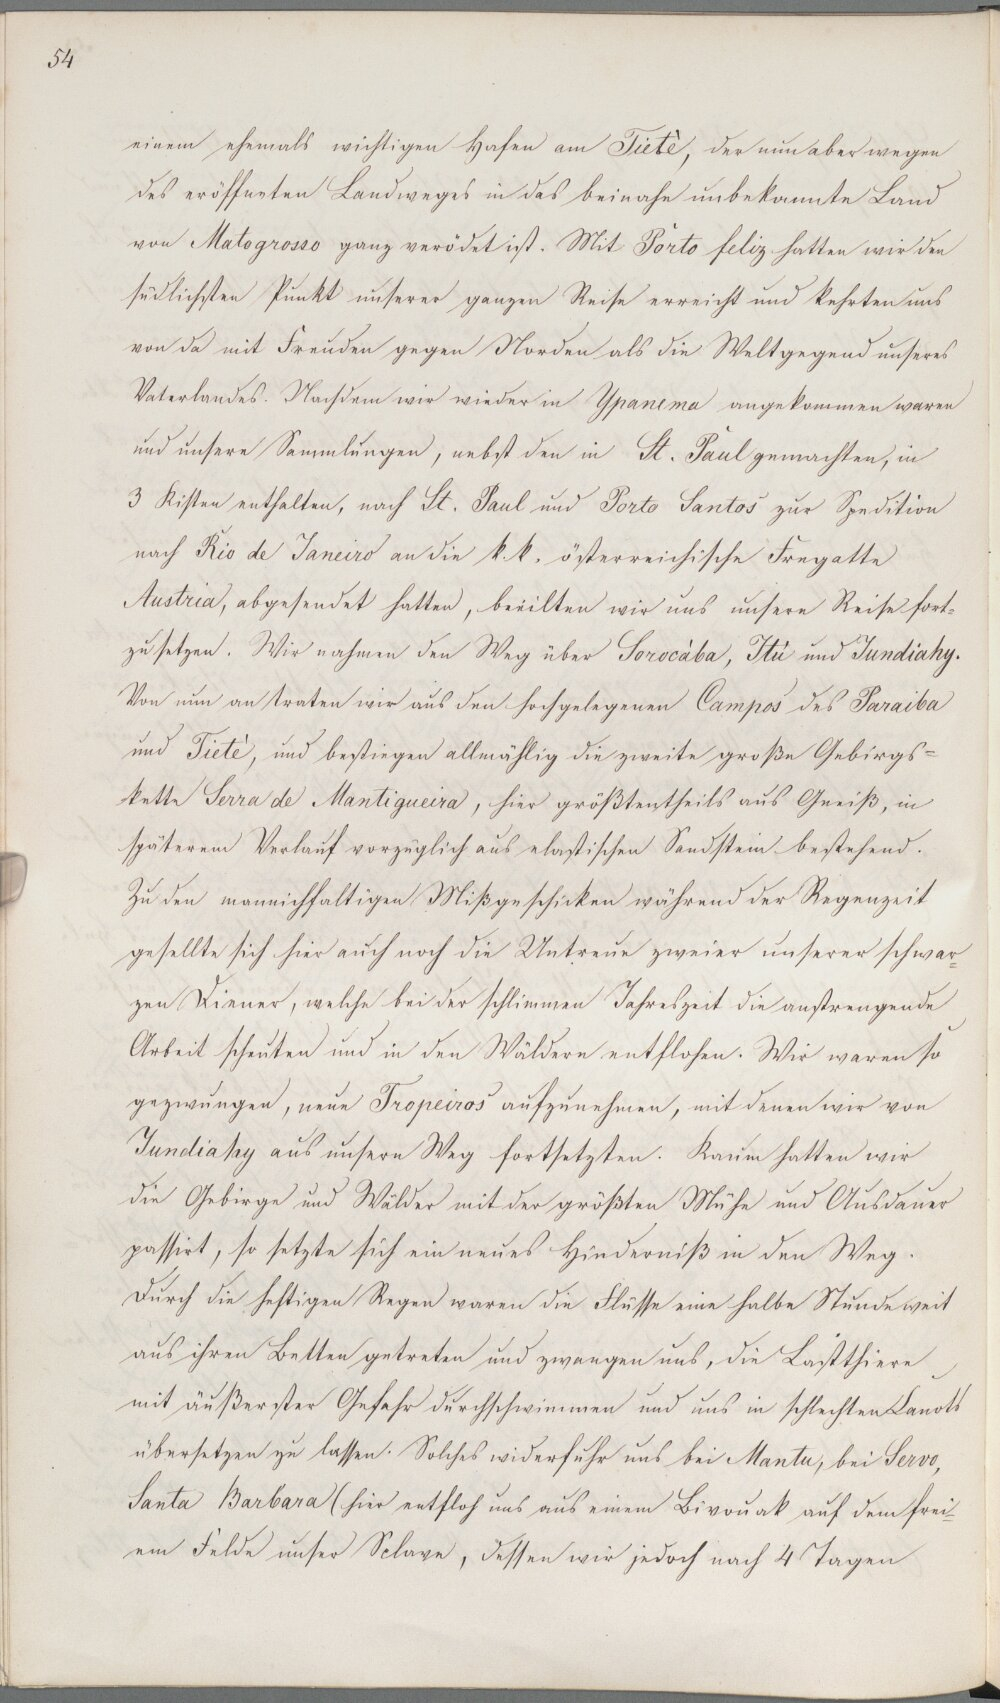 54
einem ehemals wichtigen Hafen am Tietè, der nun aber wegen
des eröffneten Landweges in das beinahe unbekannte Land
von Matogrosso ganz verödet ist. Mit Pôrto feliz hatten wir den
südlichsten Punkt unserer ganzen Reise erreicht und kehrten uns
von da mit Freuden gegen Norden als die Weltgegend unseres
Vaterlandes. Nachdem wir wieder in Ypanema angekommen waren
und unsere Sammlungen, nebst den in St. Paul gemachten, in
3 Kisten enthalten, nach St. Paul und Porto Santos zur Spedition
nach Rio de Janeiro an die k. k. österreichische Fregatte
Austria, abgesendet hatten, beeilten wir uns unsere Reise fort-
zusetzen. Wir nahmen den Weg über Sorocàba, Itù und Jundiahy.
Von nun an traten wir aus den hochgelegenen Campos des Paraiba
und Tietè, und bestiegen allmählig die zweite große Gebirgs-
kette Serra de Mantigueira, hier größtentheils aus Gneiß, in
späterem Verlauf vorzüglich aus elastischen Sandstein bestehend.
Zu den mannichfaltigen Mißgeschicken während der Regenzeit
gesellte sich hier auch noch die Untreue zweier unserer schwar-
zen Diener, welche bei der schlimmen Jahreszeit die anstrengende
Arbeit scheuten und in den Wäldern entflohen. Wir waren so
gezwungen, neue Tropeiros aufzunehmen, mit denen wir von
Jundiahy aus unsern Weg fortsetzten. Kaum hatten wir
die Gebirge und Wälder mit der größten Mühe und Ausdauer
passirt, so setzte sich ein neues Hinderniß in den Weg.
Durch die heftigen Regen waren die Flüsse eine halbe Stunde weit
aus ihren Betten getreten und zwangen uns, die Lastthiere
mit äußerster Gefahr durchschwimmen und uns in schlechten Canots
übersetzen zu lassen. Solches widerfuhr uns bei Mantu, bei Servo,
Santa Barbara (hier entfloh uns aus einem Bivouak auf dem frei-
em Felde unser Sclave, dessen wir jedoch nach 4 Tagen